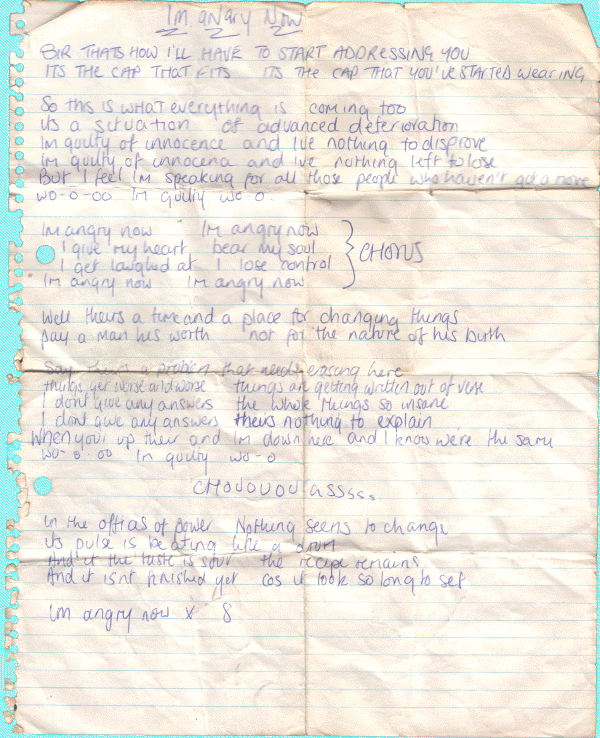 Im angry Now
SIR THATS HOW I'LL HAVE TO START ADDRESSING YOU
ITS THE CAP THAT FITS ITS THE CAP THAT YOU'VE STARTED WEARING
So this is what everything is coming too
its a situation of advanced deterioration
Im guilty of innocence and Ive nothing to disprove
Im guilty of innocence and Ive nothing left to lose
But I feel Im speaking for all those people who haven't got a
wo-o-oo Im guilty wo-o.
Im angry now Im angry now
I give my heart bear my soul
I get laughed at I lose control
Im angry now Im angry now
CHORUS
Well theirs a time and a place for changing things
pay a man his worth not for the nature of his birth
Say theirs a problem that needs erasing here
things get verse and worse things are getting written out of verse
I dont give any answers the whole things so insane
I dont give any answers theirs nothing to explain
When your up their and Im down here and I know we're the same
wo-o-oo Im guilty wo-o
CHOUOUOU assss.
In the offices of power Nothing seems to change
its pulse is beating like a drum
And if the taste is sour the recipe remains
And it isnt finished yet cos it took so long to set
Im angry now x 8